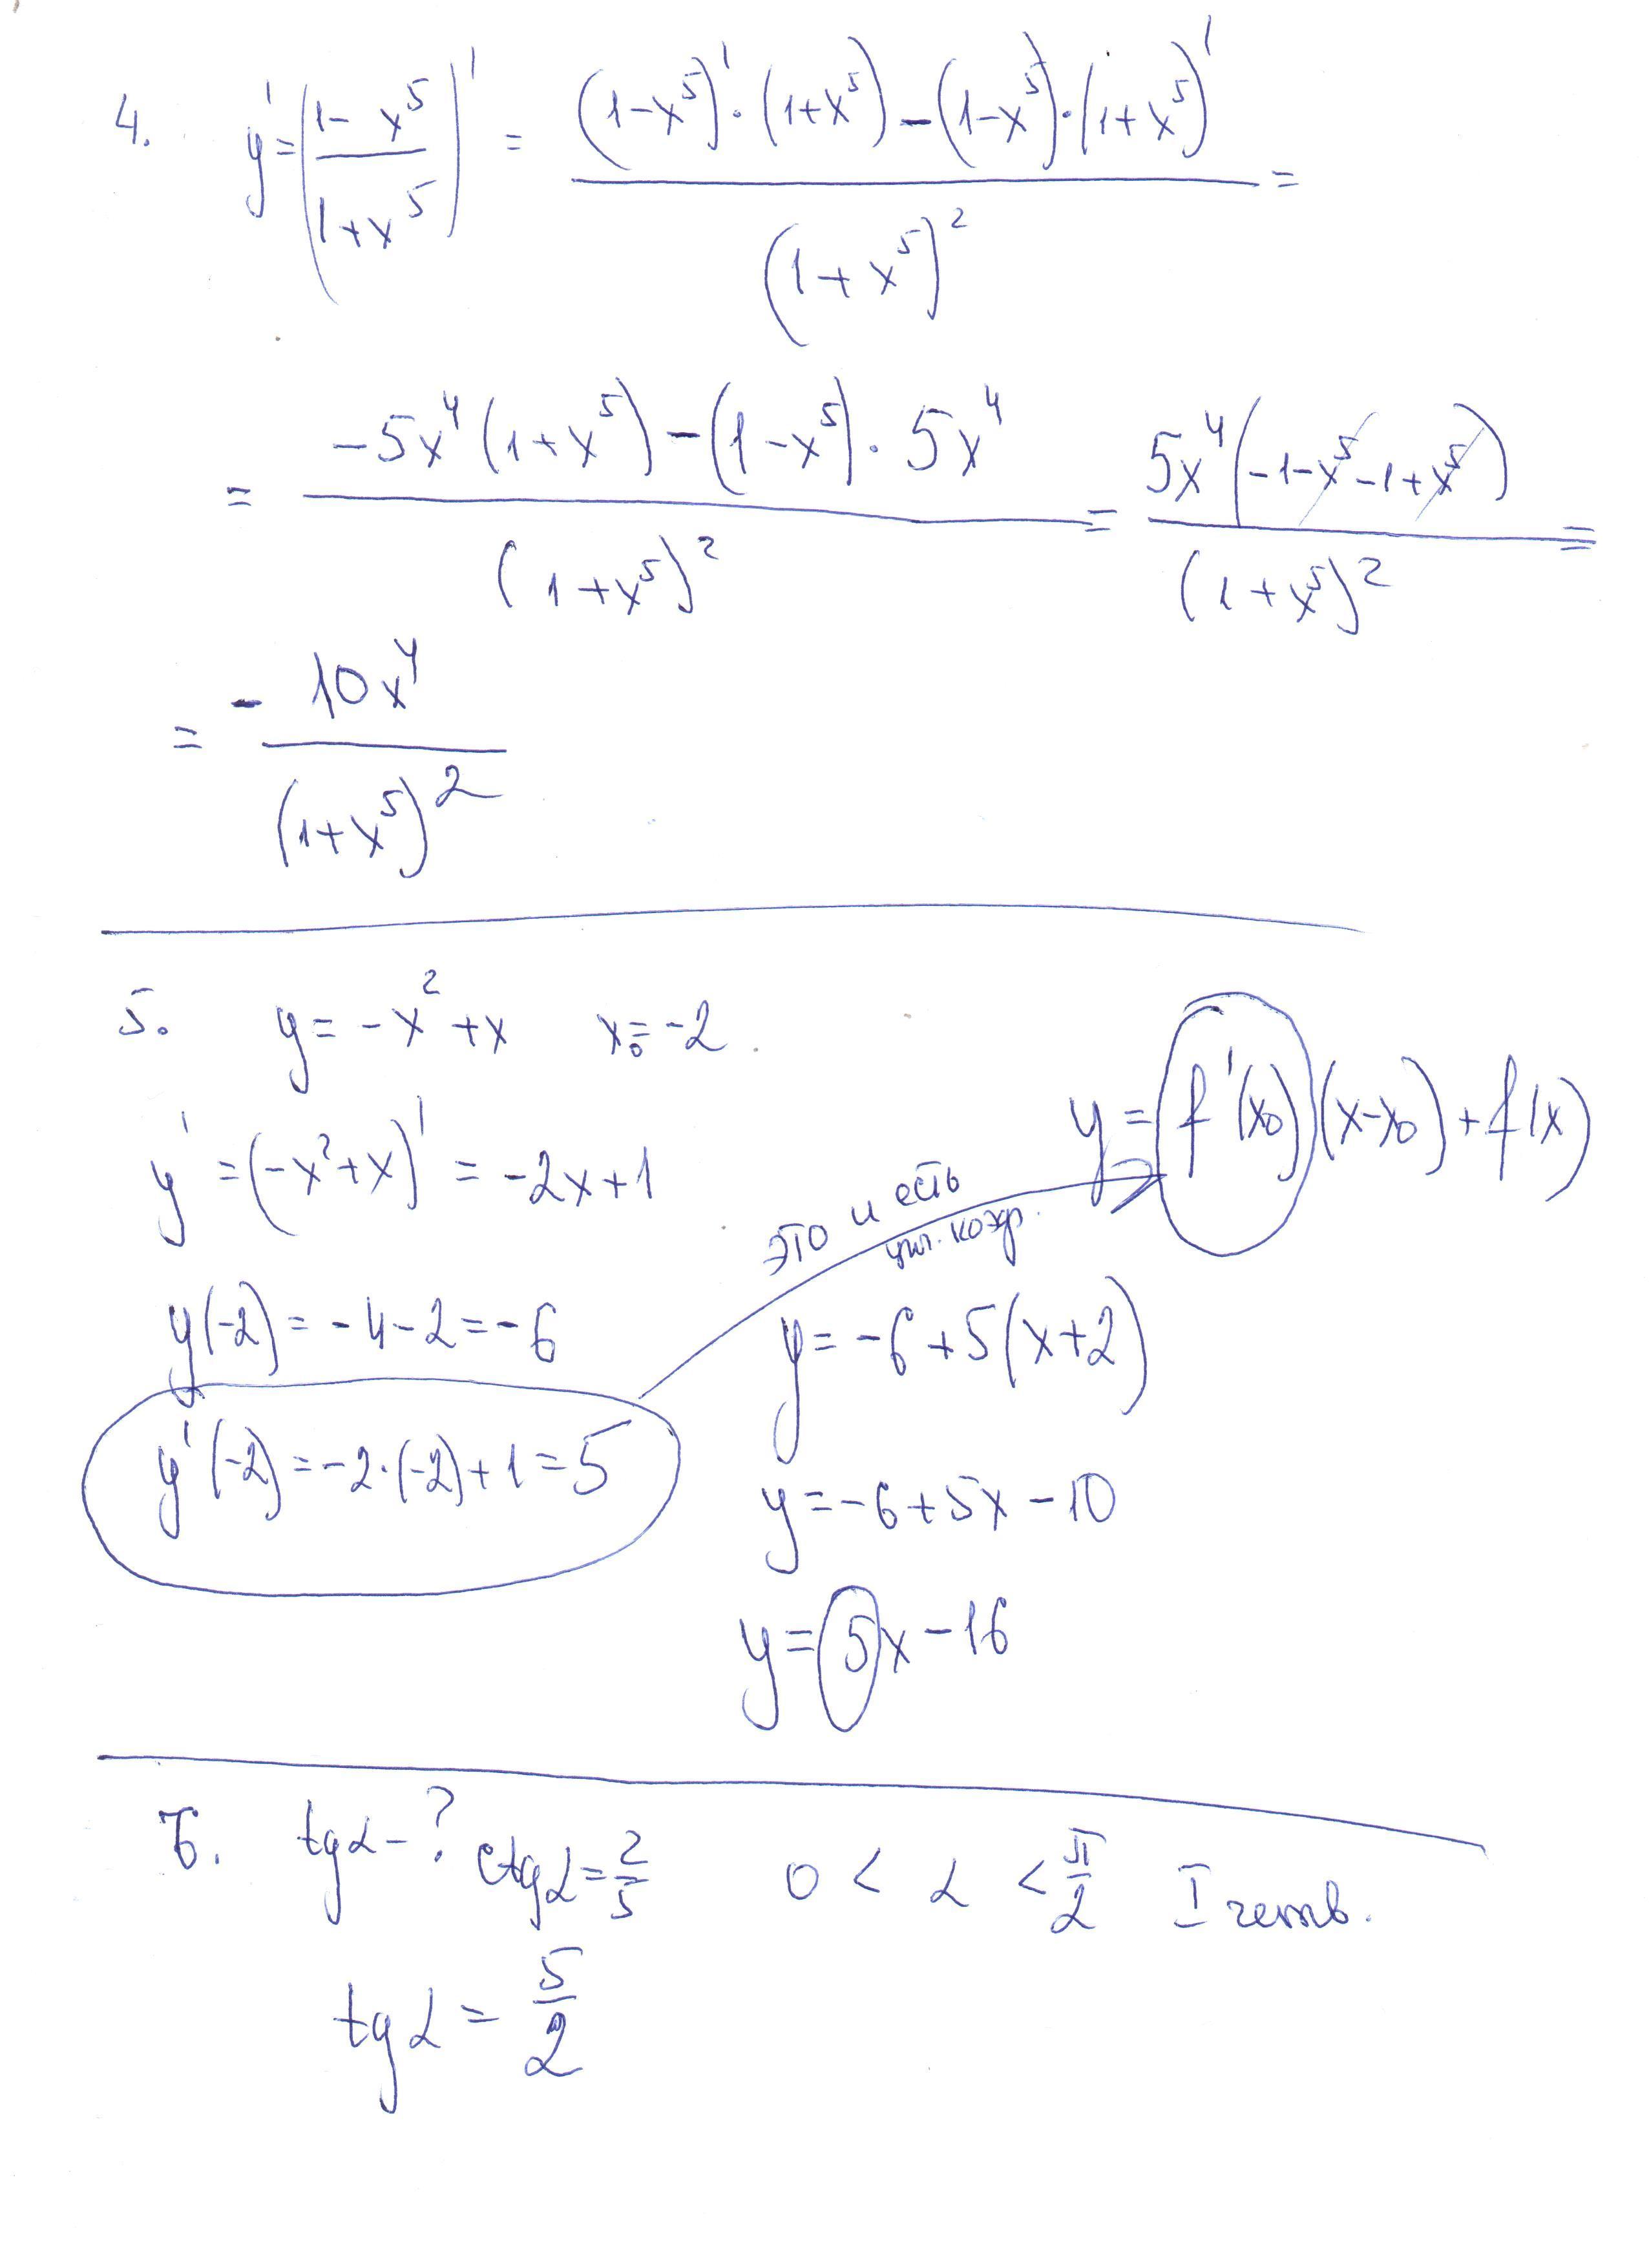 4. y' = (1 - x⁵ / 1 + x⁵)' = (1-x⁵)'·(1+x⁵) - (1-x⁵)·(1+x⁵)' / (1+x⁵)² =
= -5x⁴(1+x⁵) - (1-x⁵)·5x⁴ / (1+x⁵)² = 5x⁴(-1-x⁵-1+x⁵) / (1+x⁵)² =
= - 10x⁴ / (1+x⁵)²
5. y = -x² + x x₀ = -2
y = f'(x₀)(x-x₀) + f(x)
y' = (-x²+x)' = -2x+1
это и есть
угл. коэф.
y(-2) = -4-2 = -6
y = -6+5(x+2)
y'(-2) = -2·(-2)+1 = 5
y = -6+5x-10
y = 5x-16
6. tgα - ? ctgα = 2/5 0 < α < π/2 I четв.
tgα = 5/2